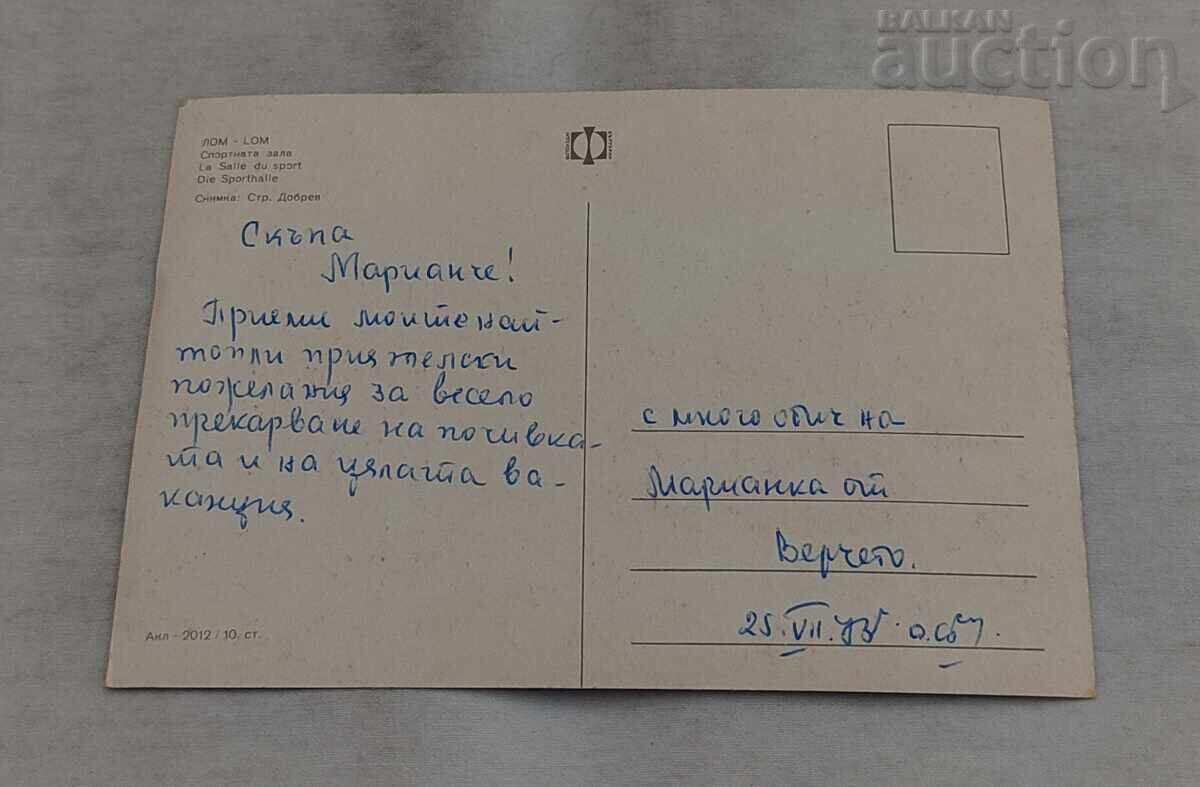 BALKAN
auction
ЛОМ - LOM
Спортната зала
La Salle du sport
Die Sporthalle
Снимка: Стр. Добрев
Скъпа
Марианче!
Приеми моите най-
топли приятелски
пожелания за весело
прекарване на почивка-
та и на цялата ва-
канция.
с много обич на
Марианка от
Верчето.
25.VII.
Акл - 2012 / 10. ст.